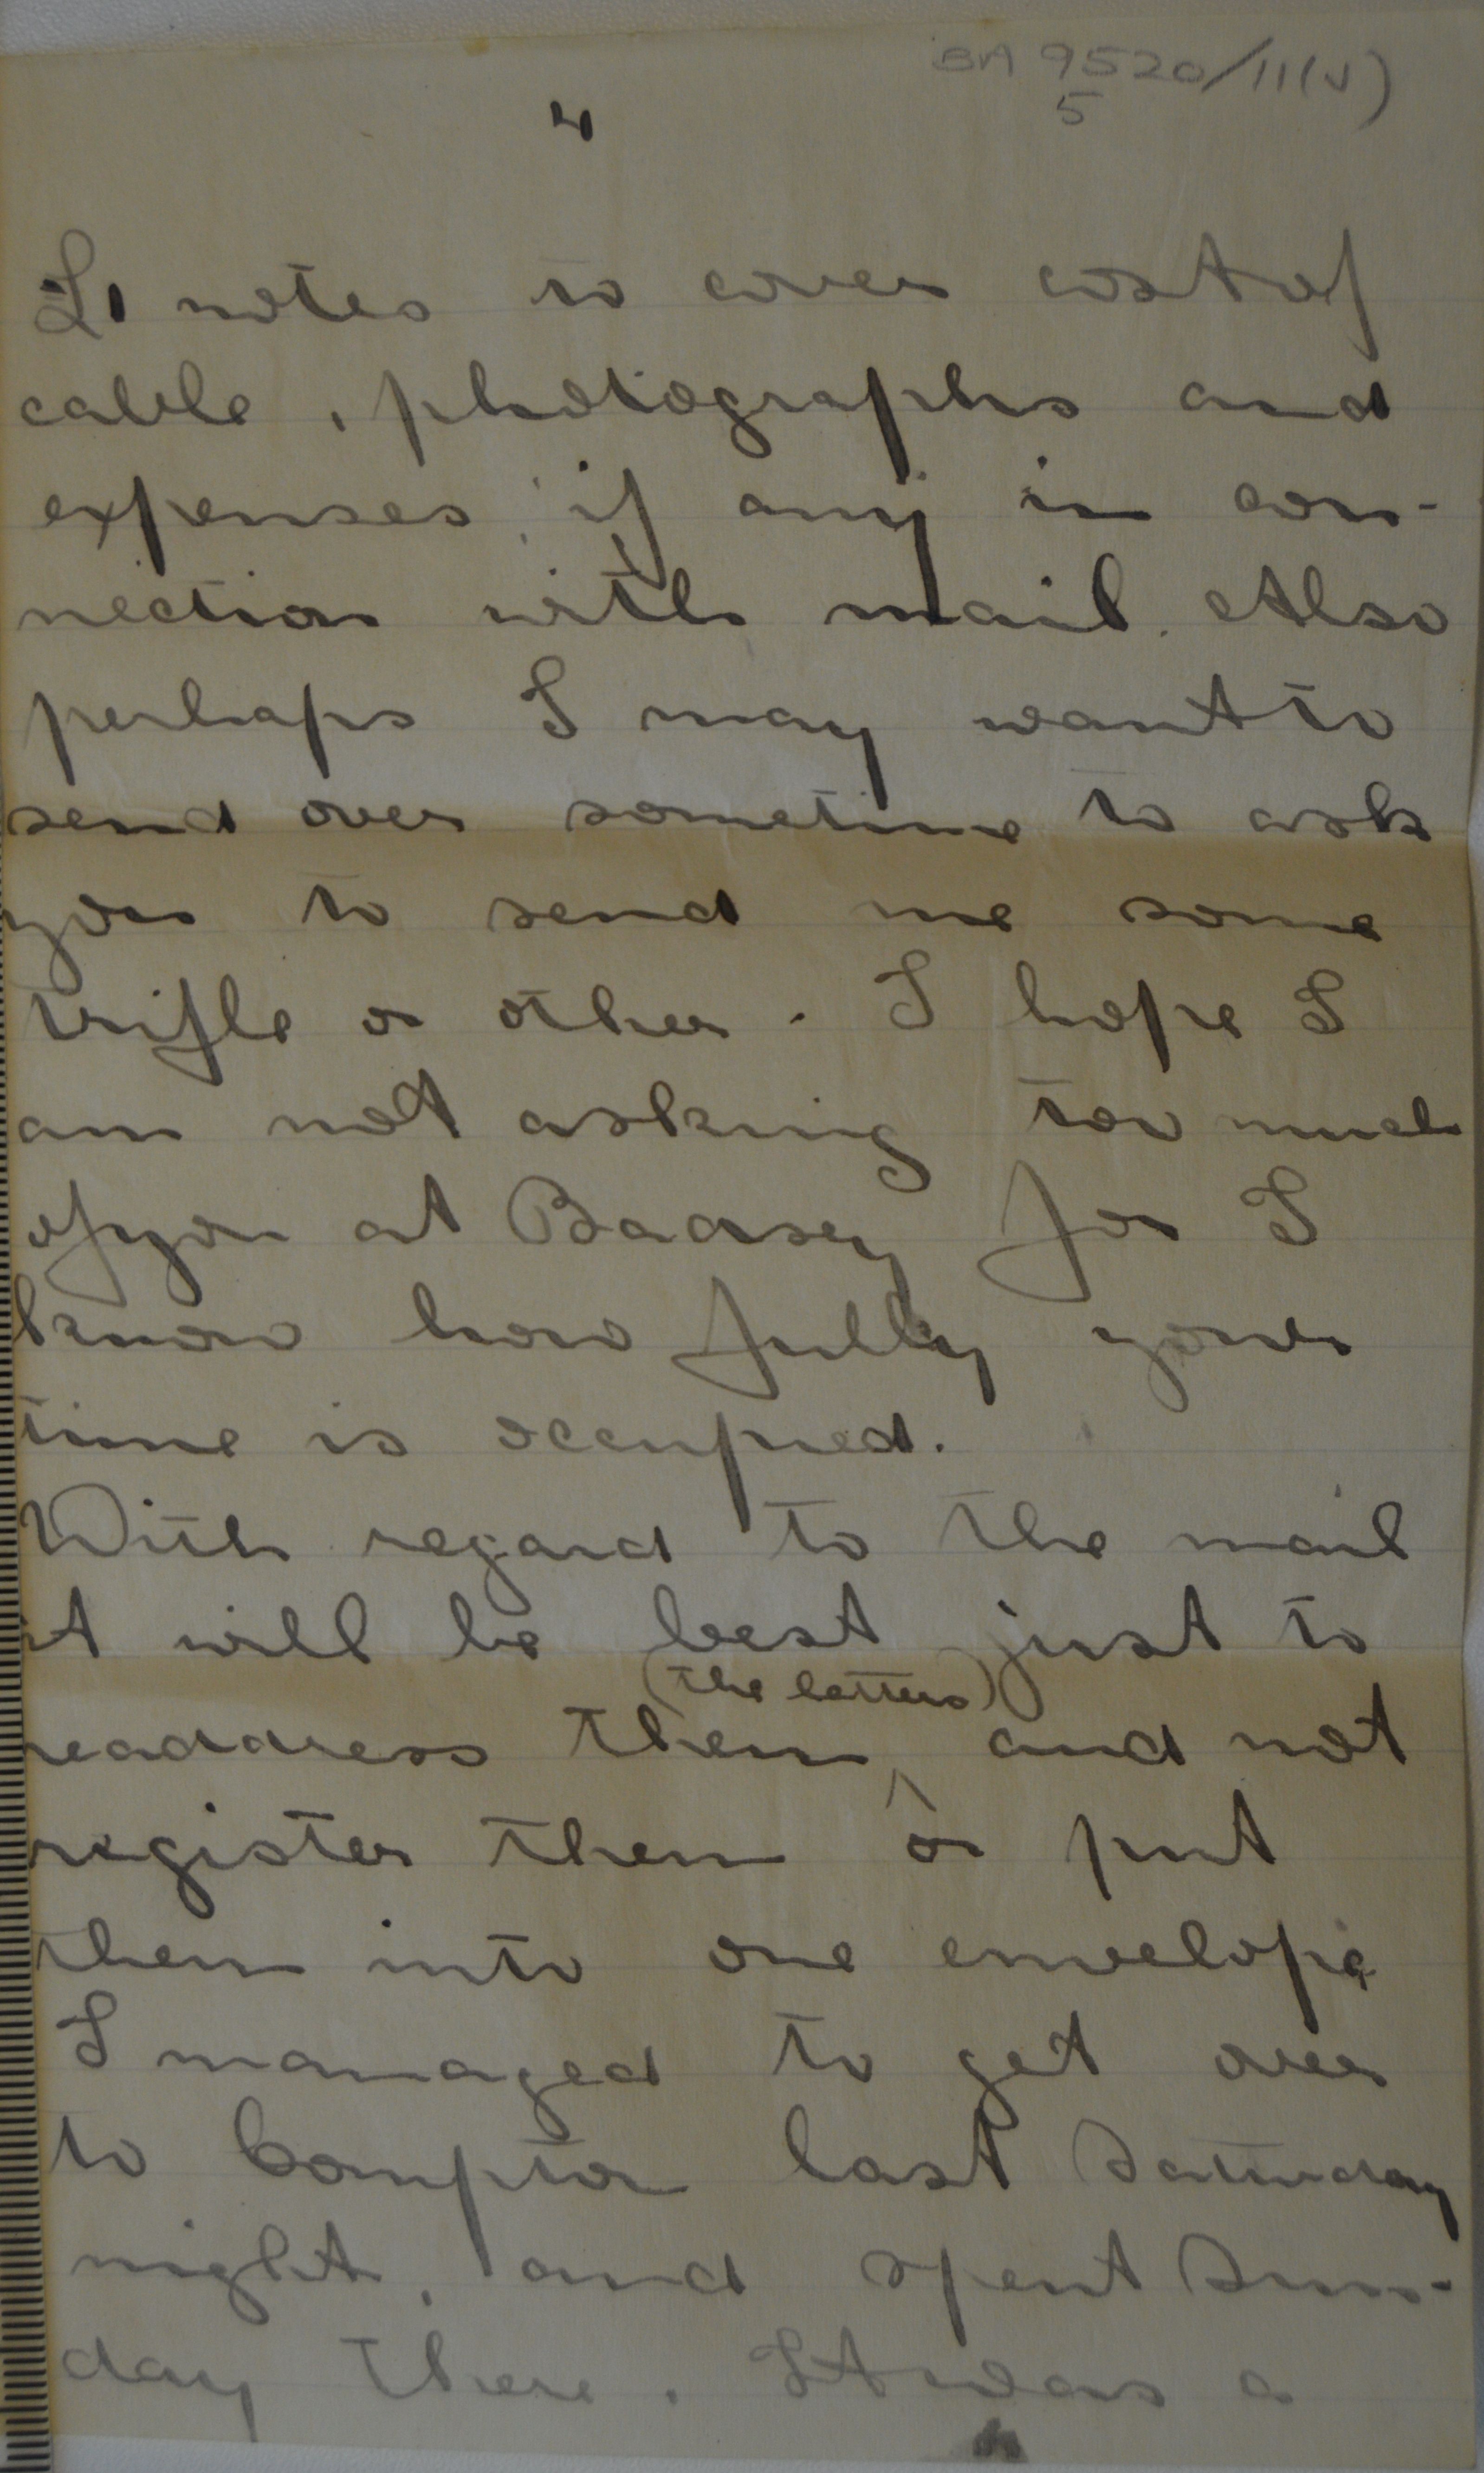 BA 9520/11(V)
5
4
£1 notes to cover cost of
cable, photographs and
expenses, if any, in con-
nection with mail. Also
perhaps I may want to
send over sometime to ask
you to send me some
trifle or other. I hope I
am not asking too much
of you at Badsey for I
know how fully your
time is occupied.
With regard to the mail
it will be best just to
(the letters)
readdress them and not
register them or put
them into one envelope.
I managed to get over
to Compton last Saturday
night, and spent Sun-
day there. It was a